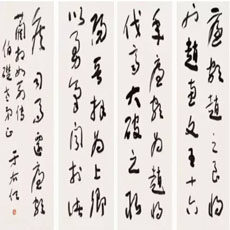 廉頗趙之良將
也趙惠文王十六
年廉頗為趙將
伐齊大破之取
陽晉拜為上卿
以勇氣聞於諸
侯 司馬遷廉頗
藺相如列傳
伯 正 于右任